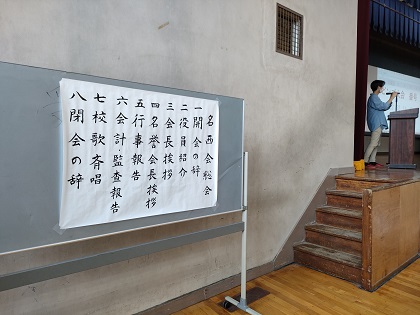 名西会総会
一開会の辞
二役員紹介
三会長挨拶
四名誉会長挨拶
五行事報告
六会計・監査報告
七校歌斉唱
八閉会の辞